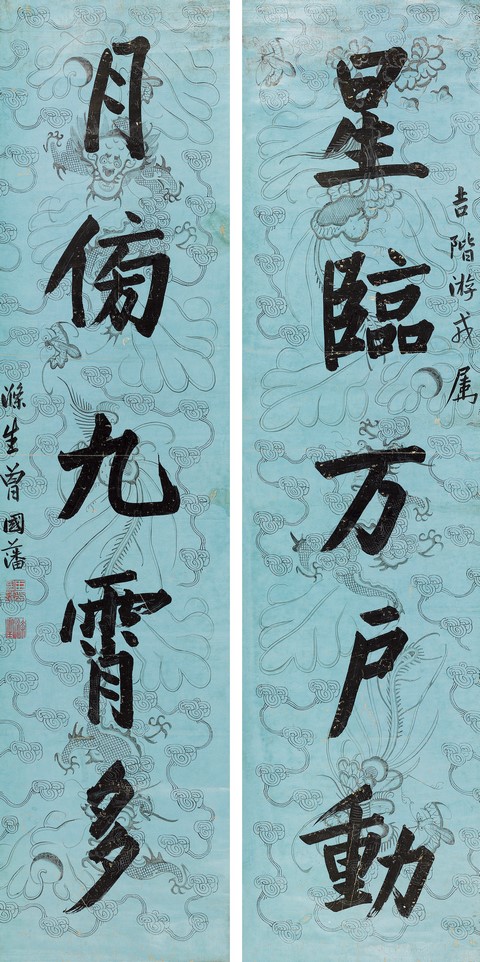 吉階游戎属
星臨万戶動
月傍九霄多
滌生曾國藩